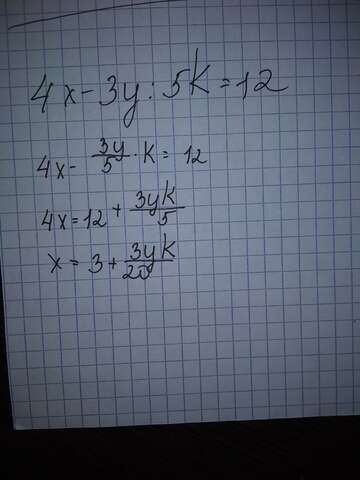 4x-3y:5k=12
4x-\frac{3y}{5}·k=12
4x=12+\frac{3yk}{5}
x=3+\frac{3yk}{20}